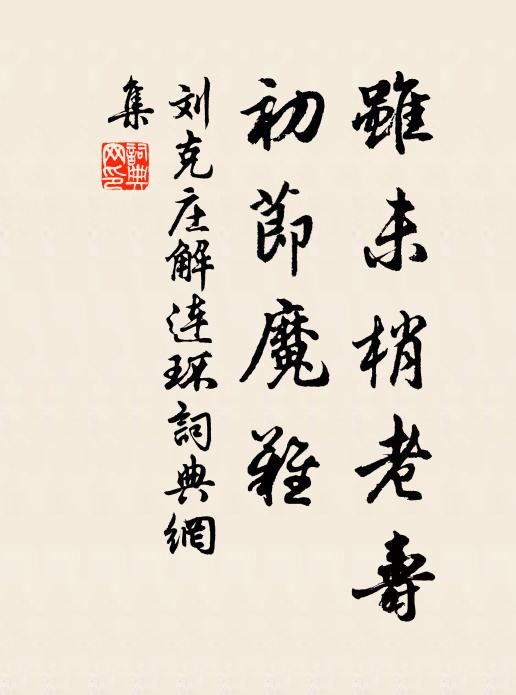 雖未梢老壽
初節魔難
刘克庄解連環詞典網
集
詞典網印